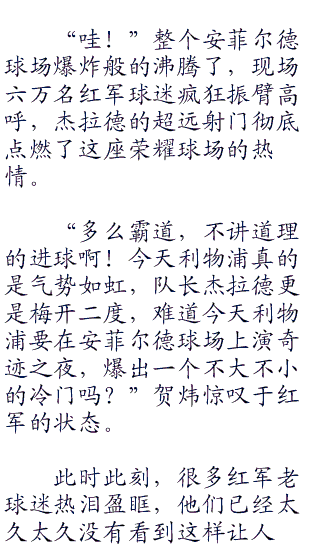 “哇！”整个安菲尔德
球场爆炸般的沸腾了，现场
六万名红军球迷疯狂振臂高
呼，杰拉德的超远射门彻底
点燃了这座荣耀球场的热
情。
“多么霸道，不讲道理
的进球啊！今天利物浦真的
是气势如虹，队长杰拉德更
是梅开二度，难道今天利物
浦要在安菲尔德球场上演奇
迹之夜，爆出一个不大不小
的冷门吗？”贺炜惊叹于红
军的状态。
此时此刻，很多红军老
球迷热泪盈眶，他们已经太
久太久没有看到这样让人